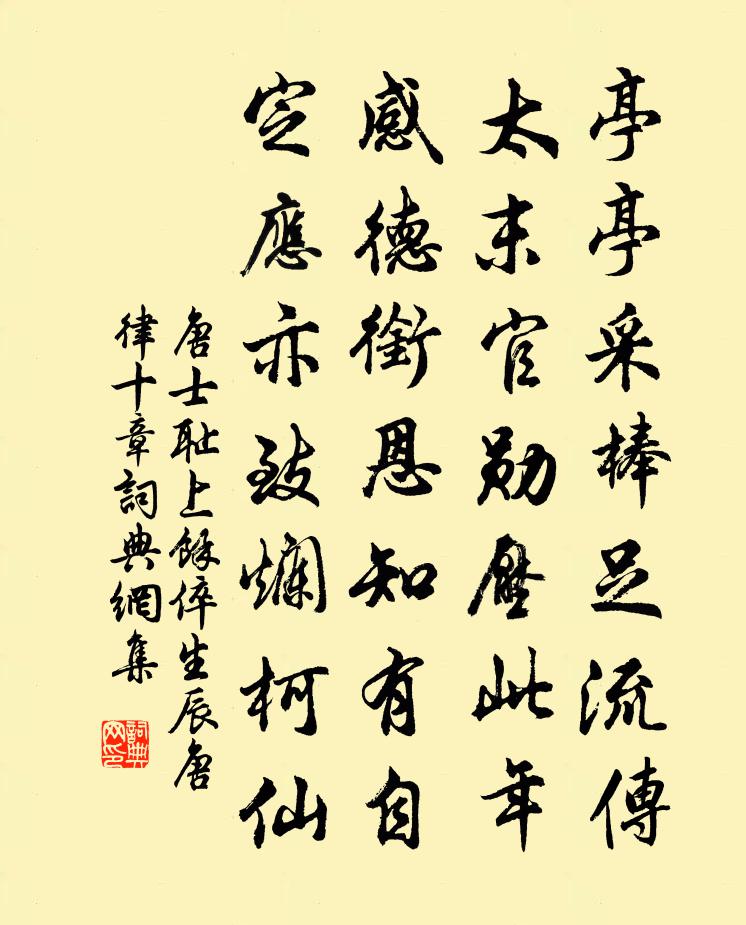 亭亭采棒足流傳
太末官勛壓此年
感德銜恩知有自
定應亦致爛柯仙
唐士耻上餘倅生辰唐
律十章詞典網集
詞典
网印